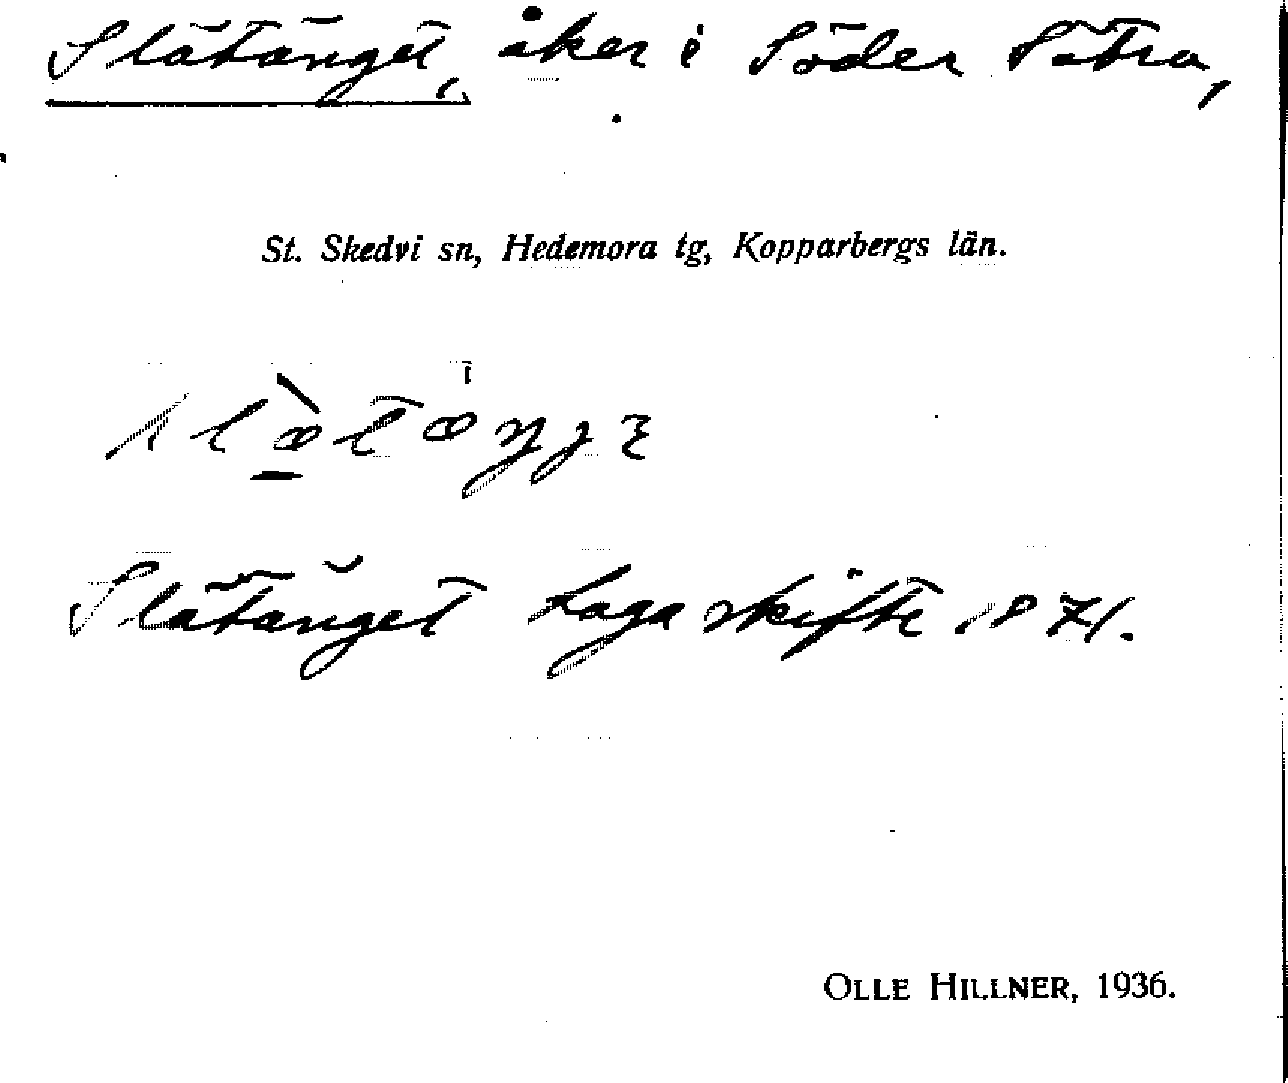 Slätänget, åker i Söder Sätra,
St. Skedvi sn, Hedemora tg, Kopparbergs län.
Slätänget Laga skifte 1871.
OLLE HILLNER, 1936.